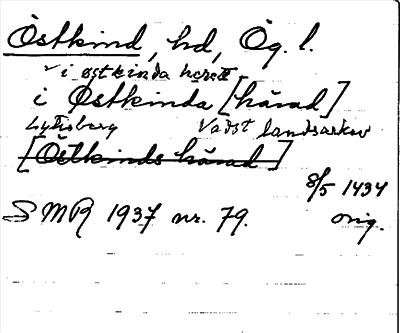 Östkind, hd, Ög. l.
i østkinda heret
i Østkinda [härad]
Vadst landsarkiv
[Östkinds härad]
8/5 1434
SMR 1937 nr. 79. orig.